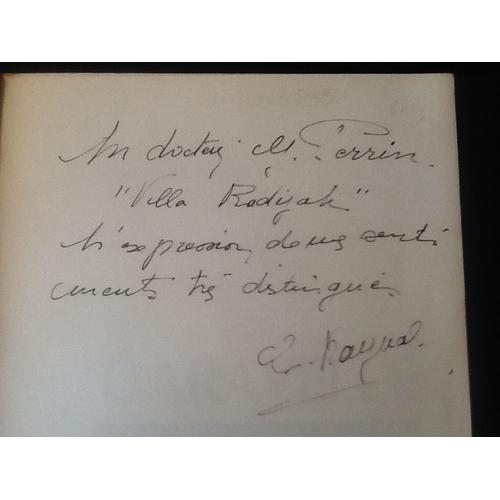 Au docteur M. Perrin.
"Villa Rodizah"
L'expression de mes senti
ments très distingués